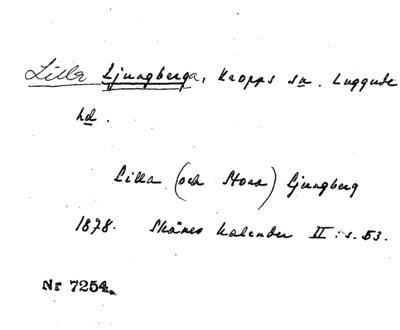 Lilla Ljungberga, Kropps sn. Luggude
hd.
Lilla (och Stora) Ljungberg
1878. Skånes Kalender II: s. 53.
Nr 7254.